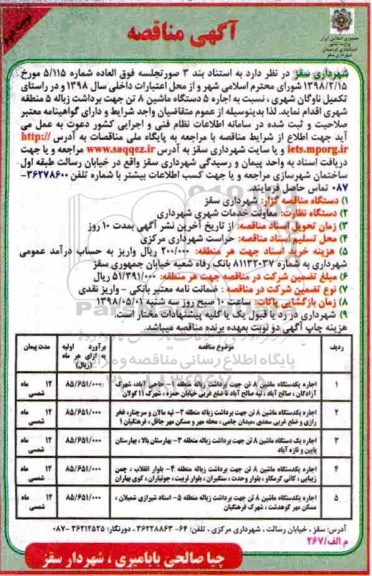 آگهی مناقصه
شهرداری سقز در نظر دارد به استناد بند ۳ صورتجلسه فوق العاده شماره ۵/۱۱۵ مورخ
۱۳۹۸/۲/۱۵ شورای محترم اسلامی شهر و از محل اعتبارات داخلی سال ۱۳۹۸ و در راستای
تکمیل ناوگان شهری ، نسبت به اجاره ۵ دستگاه ماشین ۸ تن جهت برداشت زباله ۵ منطقه
شهری اقدام نماید. لذا بدینوسیله از عموم متقاضیان واجد شرایط و دارای گواهینامه معتبر
صلاحیت و ثبت شده در سامانه اطلاعات نظام فنی و اجرایی کشور دعوت به عمل می
آید جهت اطلاع از شرایط مناقصه با مراجعه به پایگاه ملی مناقصات به آدرس http://
iets.mporg.ir و یا سایت شهرداری سقز به آدرس www.saqqez.ir مراجعه و یا جهت
دریافت اسناد به واحد پیمان و رسیدگی شهرداری سقز واقع در خیابان رسالت طبقه اول
ساختمان شهرسازی مراجعه و یا جهت کسب اطلاعات بیشتر با شماره تلفن ۳۶۲۷۸۶۰۰-
۰۸۷ تماس حاصل فرمایند.
۱) دستگاه مناقصه گزار: شهرداری سقز
۲) دستگاه نظارت: معاونت خدمات شهری شهرداری
۳) زمان تحویل اسناد مناقصه: از تاریخ آخرین نشر آگهی بمدت ۱۰ روز
۴) محل تسلیم اسناد مناقصه: حراست شهرداری مرکزی
۵) هزینه خرید اسناد جهت هر منطقه: ۲۰۰/۰۰۰ ریال واریز به حساب درآمد عمومی
شهرداری به شماره ۸۱۱۲۲۰۳۷ بانک رفاه شعبه خیابان جمهوری سقز
۶) مبلغ تضمین شرکت در مناقصه جهت هر منطقه: ۵۱/۳۹۱/۰۰۰ ریال
۷) نوع تضمین شرکت در مناقصه : ضمانت نامه معتبر بانکی - واریز نقدی
۸) زمان بازگشایی پاکات: ساعت ۱۰ صبح روز سه شنبه ۱۳۹۸/۰۵/۰۱
۹) شهرداری در رد یا قبول یک یا کلیه پیشنهادات مختار است.
هزینه چاپ آگهی دو نوبت بعهده برنده مناقصه میباشد.
ردیف موضوع مناقصه برآورد اولیه به ازای هر ماه (ریال) مدت پیمان
۱ اجاره یکدستگاه ماشین ۸ تن جهت برداشت زباله منطقه ۱- حاجی آباد، شهرک ۸۵/۶۵۱/۰۰۰ ۱۲ ماه شمسی
آزادگان ، صالح آباد ، تپه صالح آباد تا ضلع غربی خیابان حمزه ، شهرک ۱۱ گولان
۲ اجاره یکدستگاه ماشین ۸ تن جهت برداشت زباله منطقه ۲- تپه مالان و سرچنار، فخر ۸۵/۶۵۱/۰۰۰ ۱۲ ماه شمسی
رازی و ضلع غربی معدی ،میدان جامی ، محله مهر و مسکن مهر جافل ، فرهنگیان ۱
۳ اجاره یک دستگاه ماشین ۸ تن جهت برداشت زباله منطقه ۳- بهارستان بالا ، بهارستان ۸۵/۶۵۱/۰۰۰ ۱۲ ماه شمسی
پایین و تازه آباد
۴ اجاره یکدستگاه ماشین ۸ تن جهت برداشت زباله منطقه ۴- بلوار انقلاب ، چمن ۸۵/۶۵۱/۰۰۰ ۱۲ ماه شمسی
زیبایی ، کانی کرمکاو ، بلوار وحدت ، سنگبران ، بلوار تربیت ، جوتیاران ، کوی بهاران
۵ اجاره یکدستگاه ماشین ۸ تن جهت برداشت زباله منطقه ۵- استاد شیرازی شمیلان ، ۸۵/۶۵۱/۰۰۰ ۱۲ ماه شمسی
مسکن مهر کوهدشت ، شهرک فرهنگیان
آدرس: سقز ، خیابان رسالت ، شهرداری مرکزی ، تلفن: ۶۴-۳۶۲۲۸۸۶۳ ، دورنگار: ۳۶۲۱۲۵۲۵-۰۸۷
م الف/۲۶۷
چیا صالحی بابامیری ، شهردار سقز